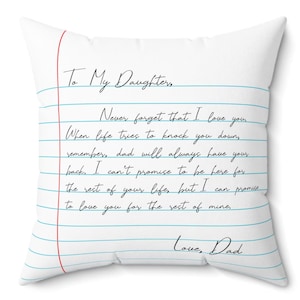 To My Daughter,
Never forget that I love you.
When life tries to knock you down,
remember, dad will always have your
back. I can't promise to be here for
the rest of your life, but I can promise
to love you for the rest of mine.
Love, Dad